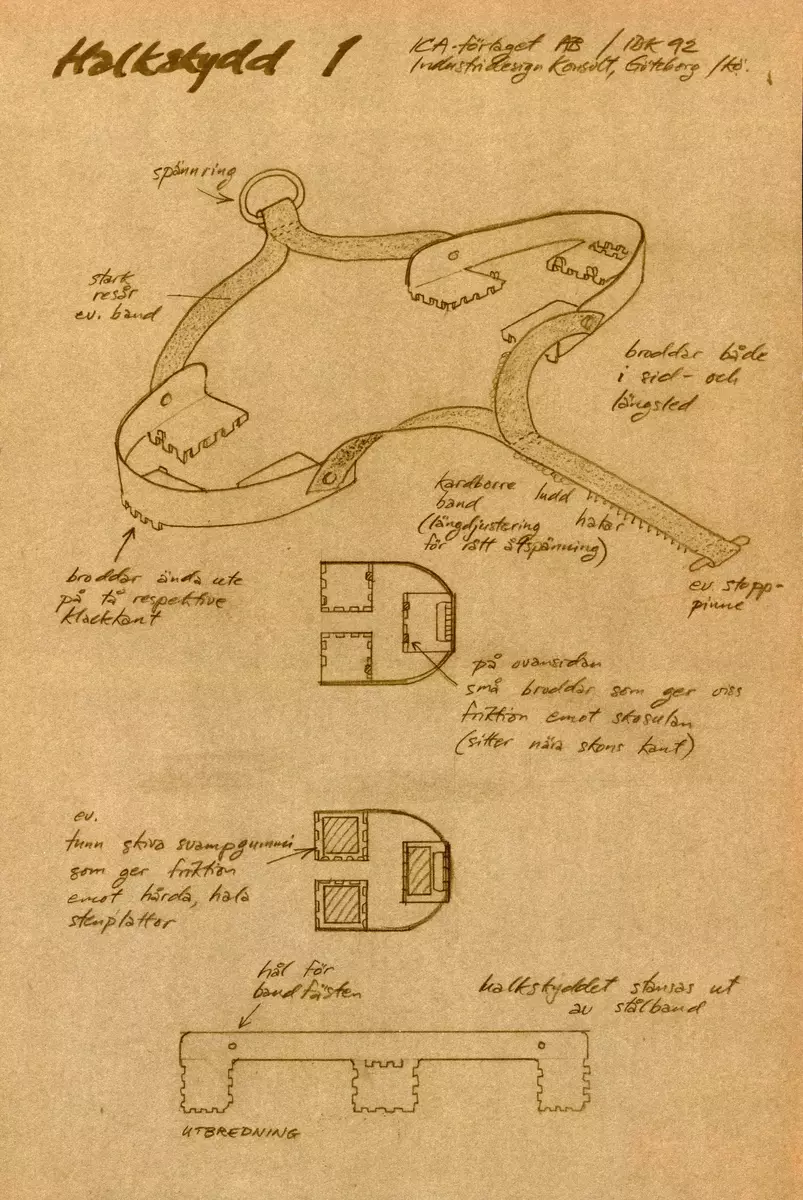 Halkskydd 1
ICA-förlaget AB / IDK 92
Industridesign Konsult, Göteborg / Kö.
spännring
stark
resår
ev. band
broddar både
i sid- och
längsled
kardborre
band
(längdjustering
för rätt åtspänning)
ludd
hakar
ev. stopp-
pinne
broddar ända ute
på tå respektive
klackkant
på ovansidan
små broddar som ger viss
friktion emot skosulan
(sitter nära skons kant)
ev.
tunn skiva svampgummi
som ger friktion
emot hårda, hala
stenplattor
hål för
bandfästen
halkskyddet stansas ut
av stålband
UTBREDNING